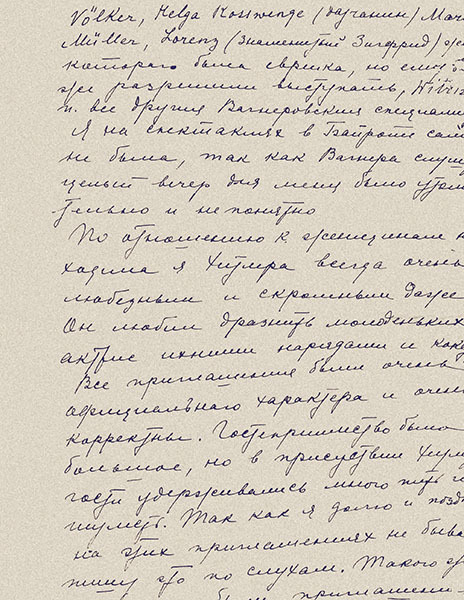 Völker, Helga Rosswenge (датчанин) Mar
Müller, Lorenz (знаменитый Зигфрид) же
котораго была еврейка, но ему
же разрешили выступать,
и. все другия Вагнеровския специали
Я на спектаклях в Байроте сам
не была, так как Вагнера слуш
целый вечер для меня было утом
тельно и не понятно
По отношению к женщинам н
ходила я Хитлра всегда очень
любезным и скромным даже
Он любил дразнить молоденьких
актрис ихними нарядами и коке
Все приглашения были очень
официальнаго характера и очен
корректны. Гостеприимство было
большое, но в присутствии Хитл
гости удерживались много пить и
шуметь. Так как я долго и поздн
на этих приглашениях не быва
пишу это по слухам. Такого
приглашени-